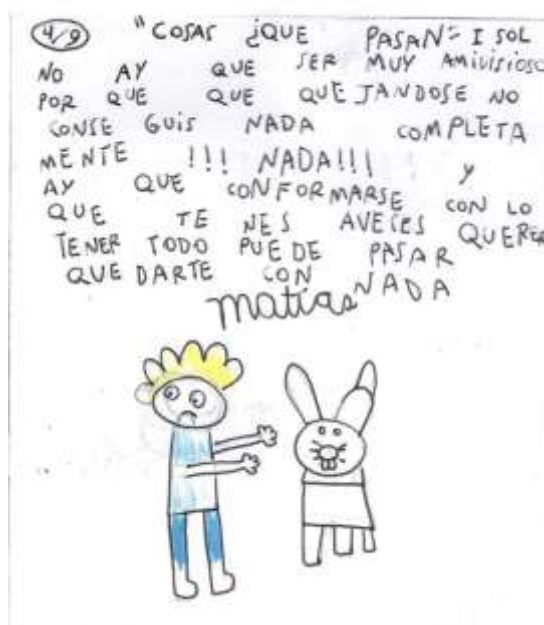 4/9 "COSAS ¿QUE PASAN" ISOL
NO AY QUE SER MUY AMIVISIOSO
POR QUE QUE QUEJANDOSE NO
CONSE GUIS NADA COMPLETA
MENTE !!! NADA!!! Y
AY QUE CONFORMARSE CON LO
QUE TE NES AVECES QUERER
TENER TODO PUEDE PASAR
QUE DARTE CON NADA
matías